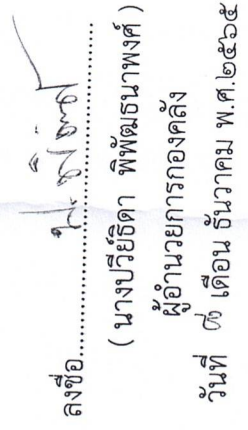 ลงชื่อ..........................................
( นางปวีย์ธิดา พิพัฒธนาพงศ์ )
ผู้อำนวยการกองคลัง
วันที่ ๗ เดือน ธันวาคม พ.ศ.๒๕๖๕